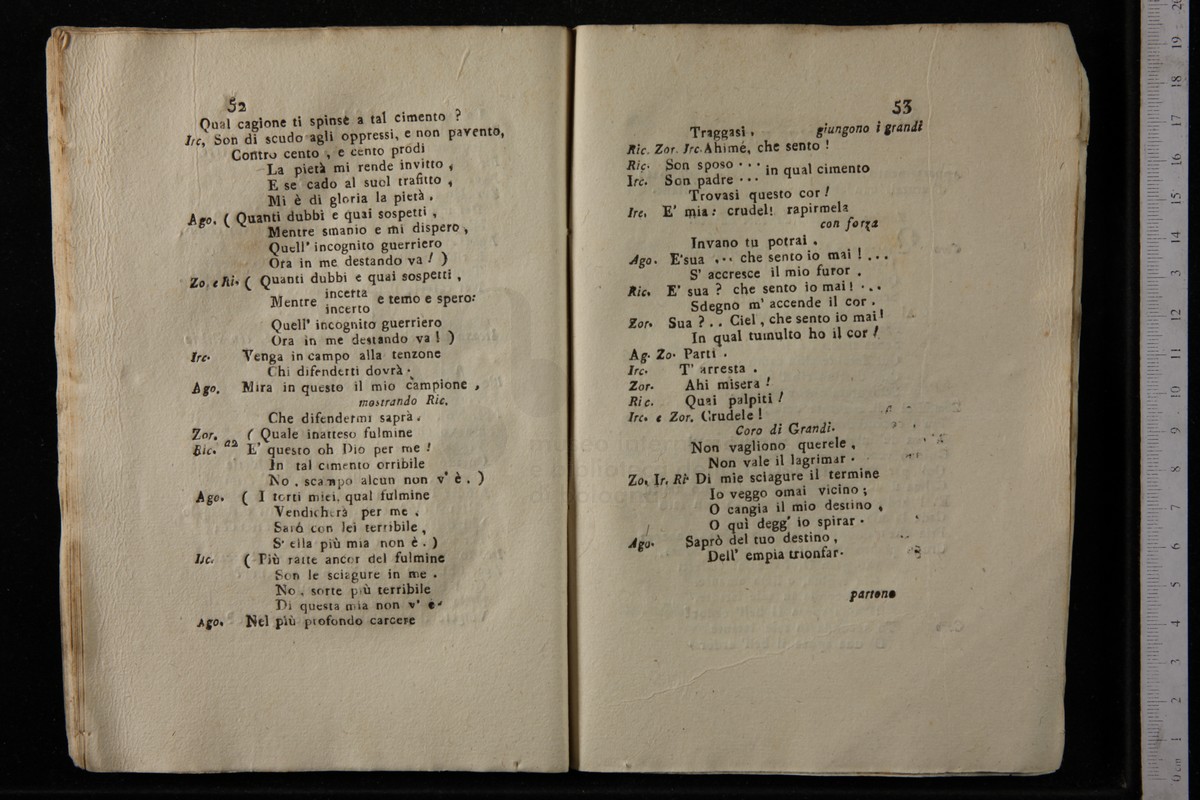 52
Qual cagione ti spinse a tal cimento ?
Irc, Son di scudo agli oppressi, e non pavento,
Contro cento , e cento prodi
La pietà mi rende invitto ,
E se cado al suol trafitto ,
Mi è di gloria la pietà .
Ago. ( Quanti dubbi e quai sospetti ,
Mentre smanio e mi dispero ,
Quell' incognito guerriero
Ora in me destando va ! )
Zo, e Ri. ( Quanti dubbi e quai sospetti ,
Mentre incerta incerto e temo e spero:
Quell' incognito guerriero
Ora in me destando va ! )
Irc. Venga in campo alla tenzone
Chi difenderti dovrà .
Ago. Mira in questo il mio campione ,
mostrando Ric.
Che difendermi saprà .
Zor. ( Quale inatteso fulmine
Ric. a2 E' questo oh Dio per me !
In tal cimento orribile
No , scampo alcun non v' è . )
Ago. ( I torti miei, qual fulmine
Vendicherà per me .
Sarò con lei terribile ,
S' ella più mia non è . )
Irc. ( Più ratte ancor del fulmine
Son le sciagure in me .
No , sorte più terribile
Di questa mia non v' è
Ago. Nel più profondo carcere
53
Traggasi . giungono i grandi
Ric. Zor. Irc. Ahimé, che sento !
Ric. Son sposo . . . in qual cimento
Irc. Son padre . . .
Trovasi questo cor !
Irc. E' mia : crudel! rapirmela
con forza
Invano tu potrai .
Ago. E'sua ... che sento io mai ! ...
S' accresce il mio furor .
Ric. E' sua ? che sento io mai ! ...
Sdegno m' accende il cor .
Zor. Sua ? . . Ciel , che sento io mai !
In qual tumulto ho il cor !
Ag. Zo. Parti .
Irc. T' arresta .
Zor. Ahi misera !
Ric. Quai palpiti !
Irc. e Zor. Crudele !
Coro di Grandi.
Non vagliono querele ,
Non vale il lagrimar .
Zo, Ir. Ri. Di mie sciagure il termine
Io veggo omai vicino ;
O cangia il mio destino ,
O quì degg' io spirar .
Ago. Saprò del tuo destino ,
Dell' empia trionfar.
partono